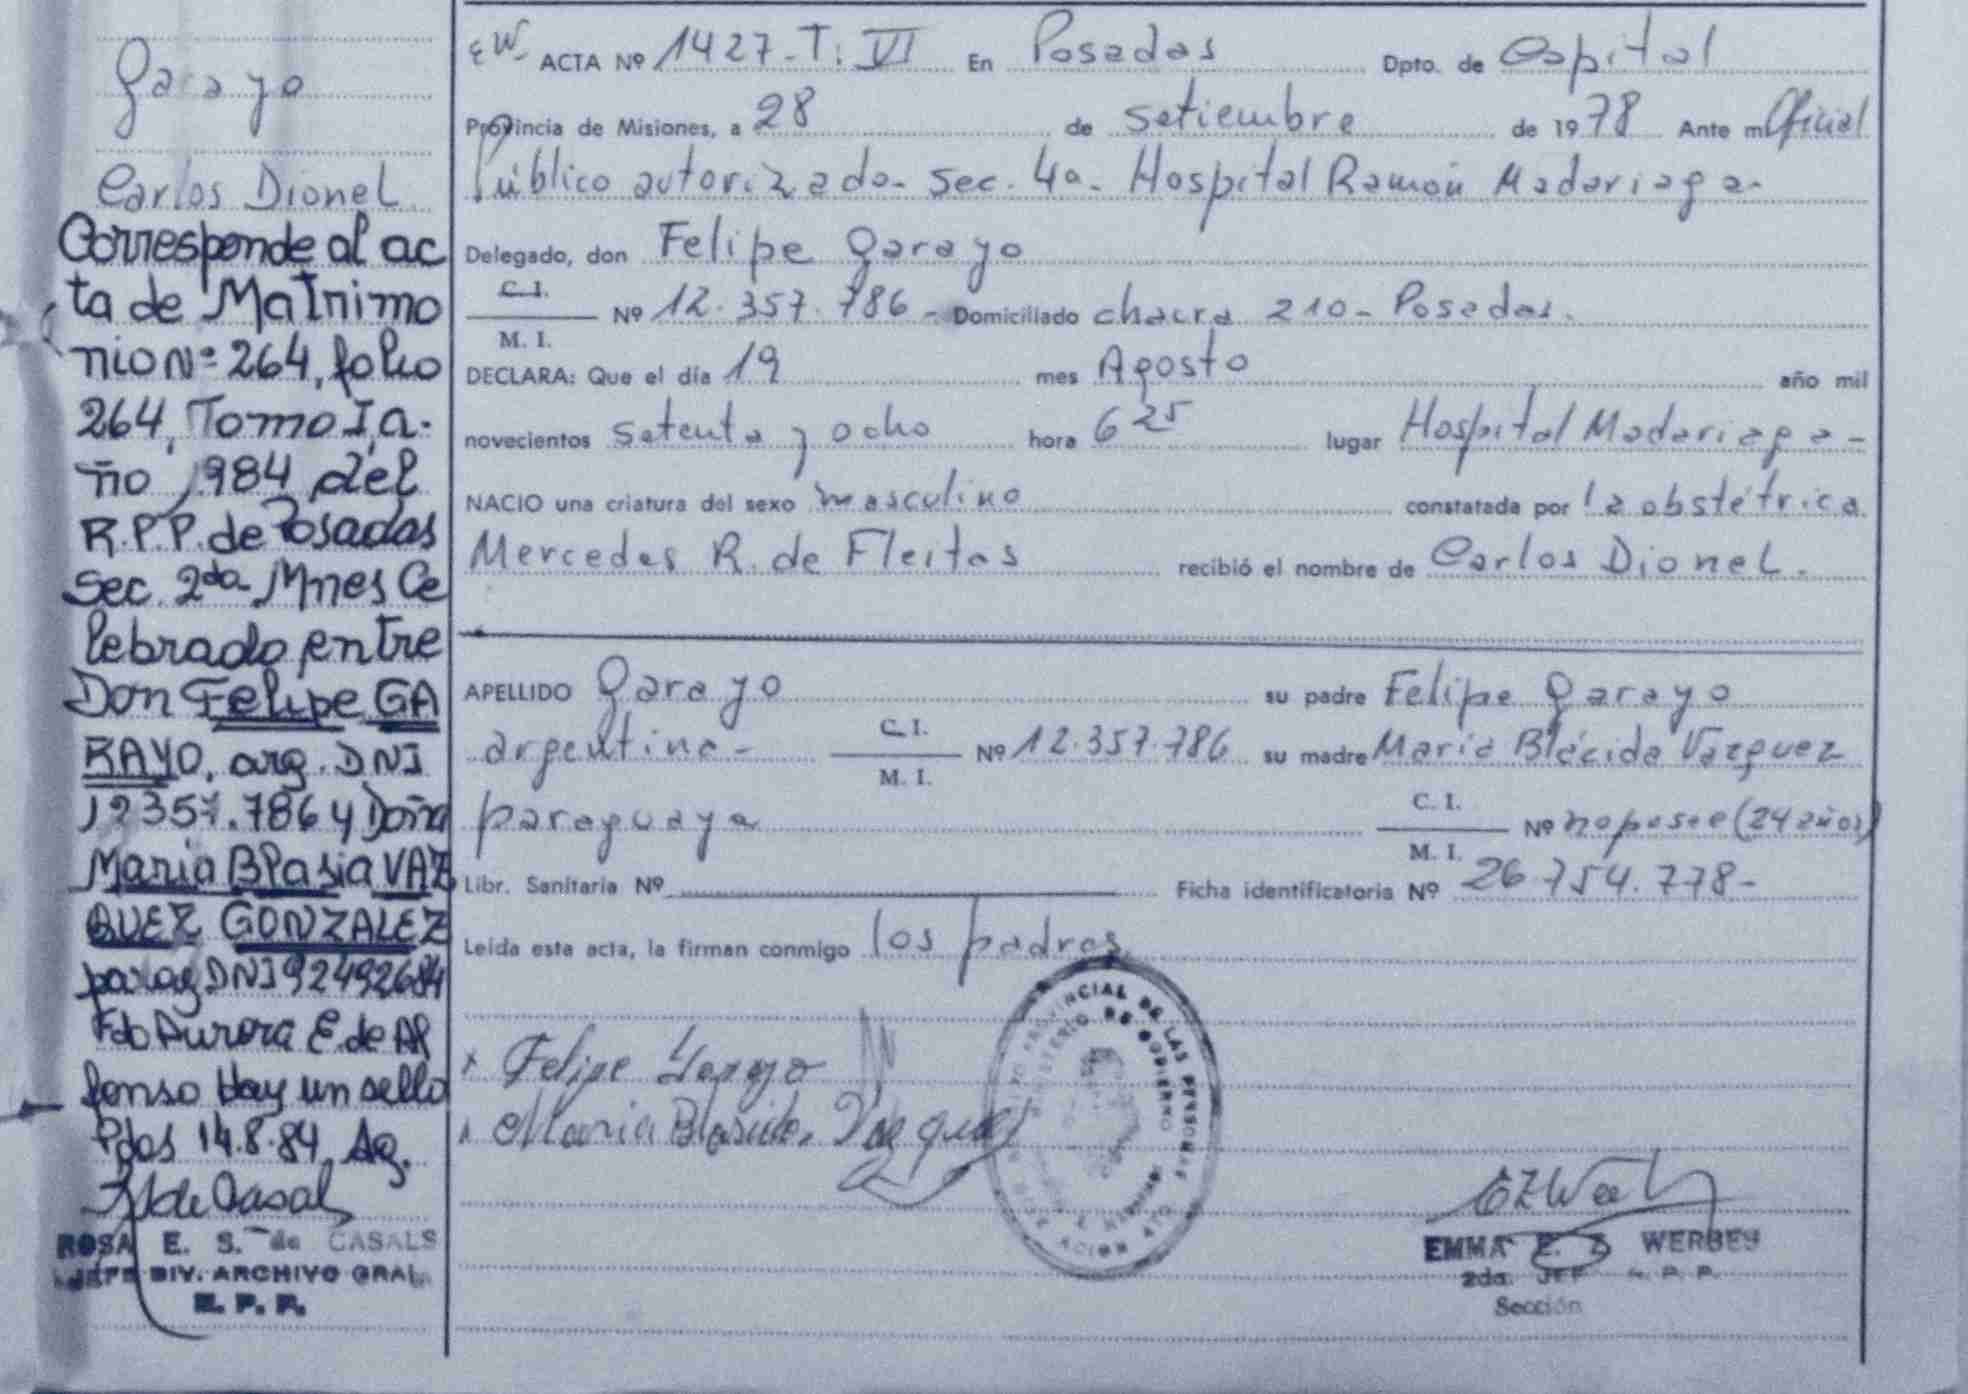 Garayo
Carlos Dionel
Corresponde al ac
ta de Matrimo
nio Nº 264, folio
264, Tomo I, a-
ño 1984 del
R.P.P. de Posadas
Sec. 2da Mnes Ce
lebrado entre
Don Felipe GA
RAYO, arg. DNI
12357.786 y Doña
Maria Blasia VAZ
QUEZ GONZALEZ
parag DNI 92492684
Fdo Aurora E. de Al
fonso Hay un sello
Pdas 14.8.84. Ag.
ROSA E. S. de CASALS
JEFE DIV. ARCHIVO GRAL.
R. P. P.
EW- ACTA Nº 1427-T: VI En Posadas Dpto. de Capital
Provincia de Misiones, a 28 de setiembre de 1978 Ante mí Oficial
Público autorizado- Sec. 4a- Hospital Ramón Madariaga-
Delegado, don Felipe Garayo
C. I.
M. I.
Nº 12.357.786- Domiciliado chacra 210- Posadas.
DECLARA: Que el día 19 mes Agosto año mil
novecientos setenta y ocho hora 6 25 lugar Hospital Madariaga-
NACIO una criatura del sexo masculino constatada por la obstétrica
Mercedes R. de Fleitas recibió el nombre de Carlos Dionel.
APELLIDO Garayo su padre Felipe Garayo
argentino- C. I. M. I. Nº 12.357.786 su madre Maria Blácida Vazquez
paraguaya C. I. M. I. Nº no posee (24 años)
Libr. Sanitaria Nº Ficha identificatoria Nº 26.754.778-
Leída esta acta, la firman conmigo los padres.
x Felipe Garayo
Maria Blasida Vazquez
PROVINCIAL DE LAS PERSONAS
MINISTERIO DE GOBIERNO
EMMA E. Z. WERBES
2da. JEF R. P. P.
Sección